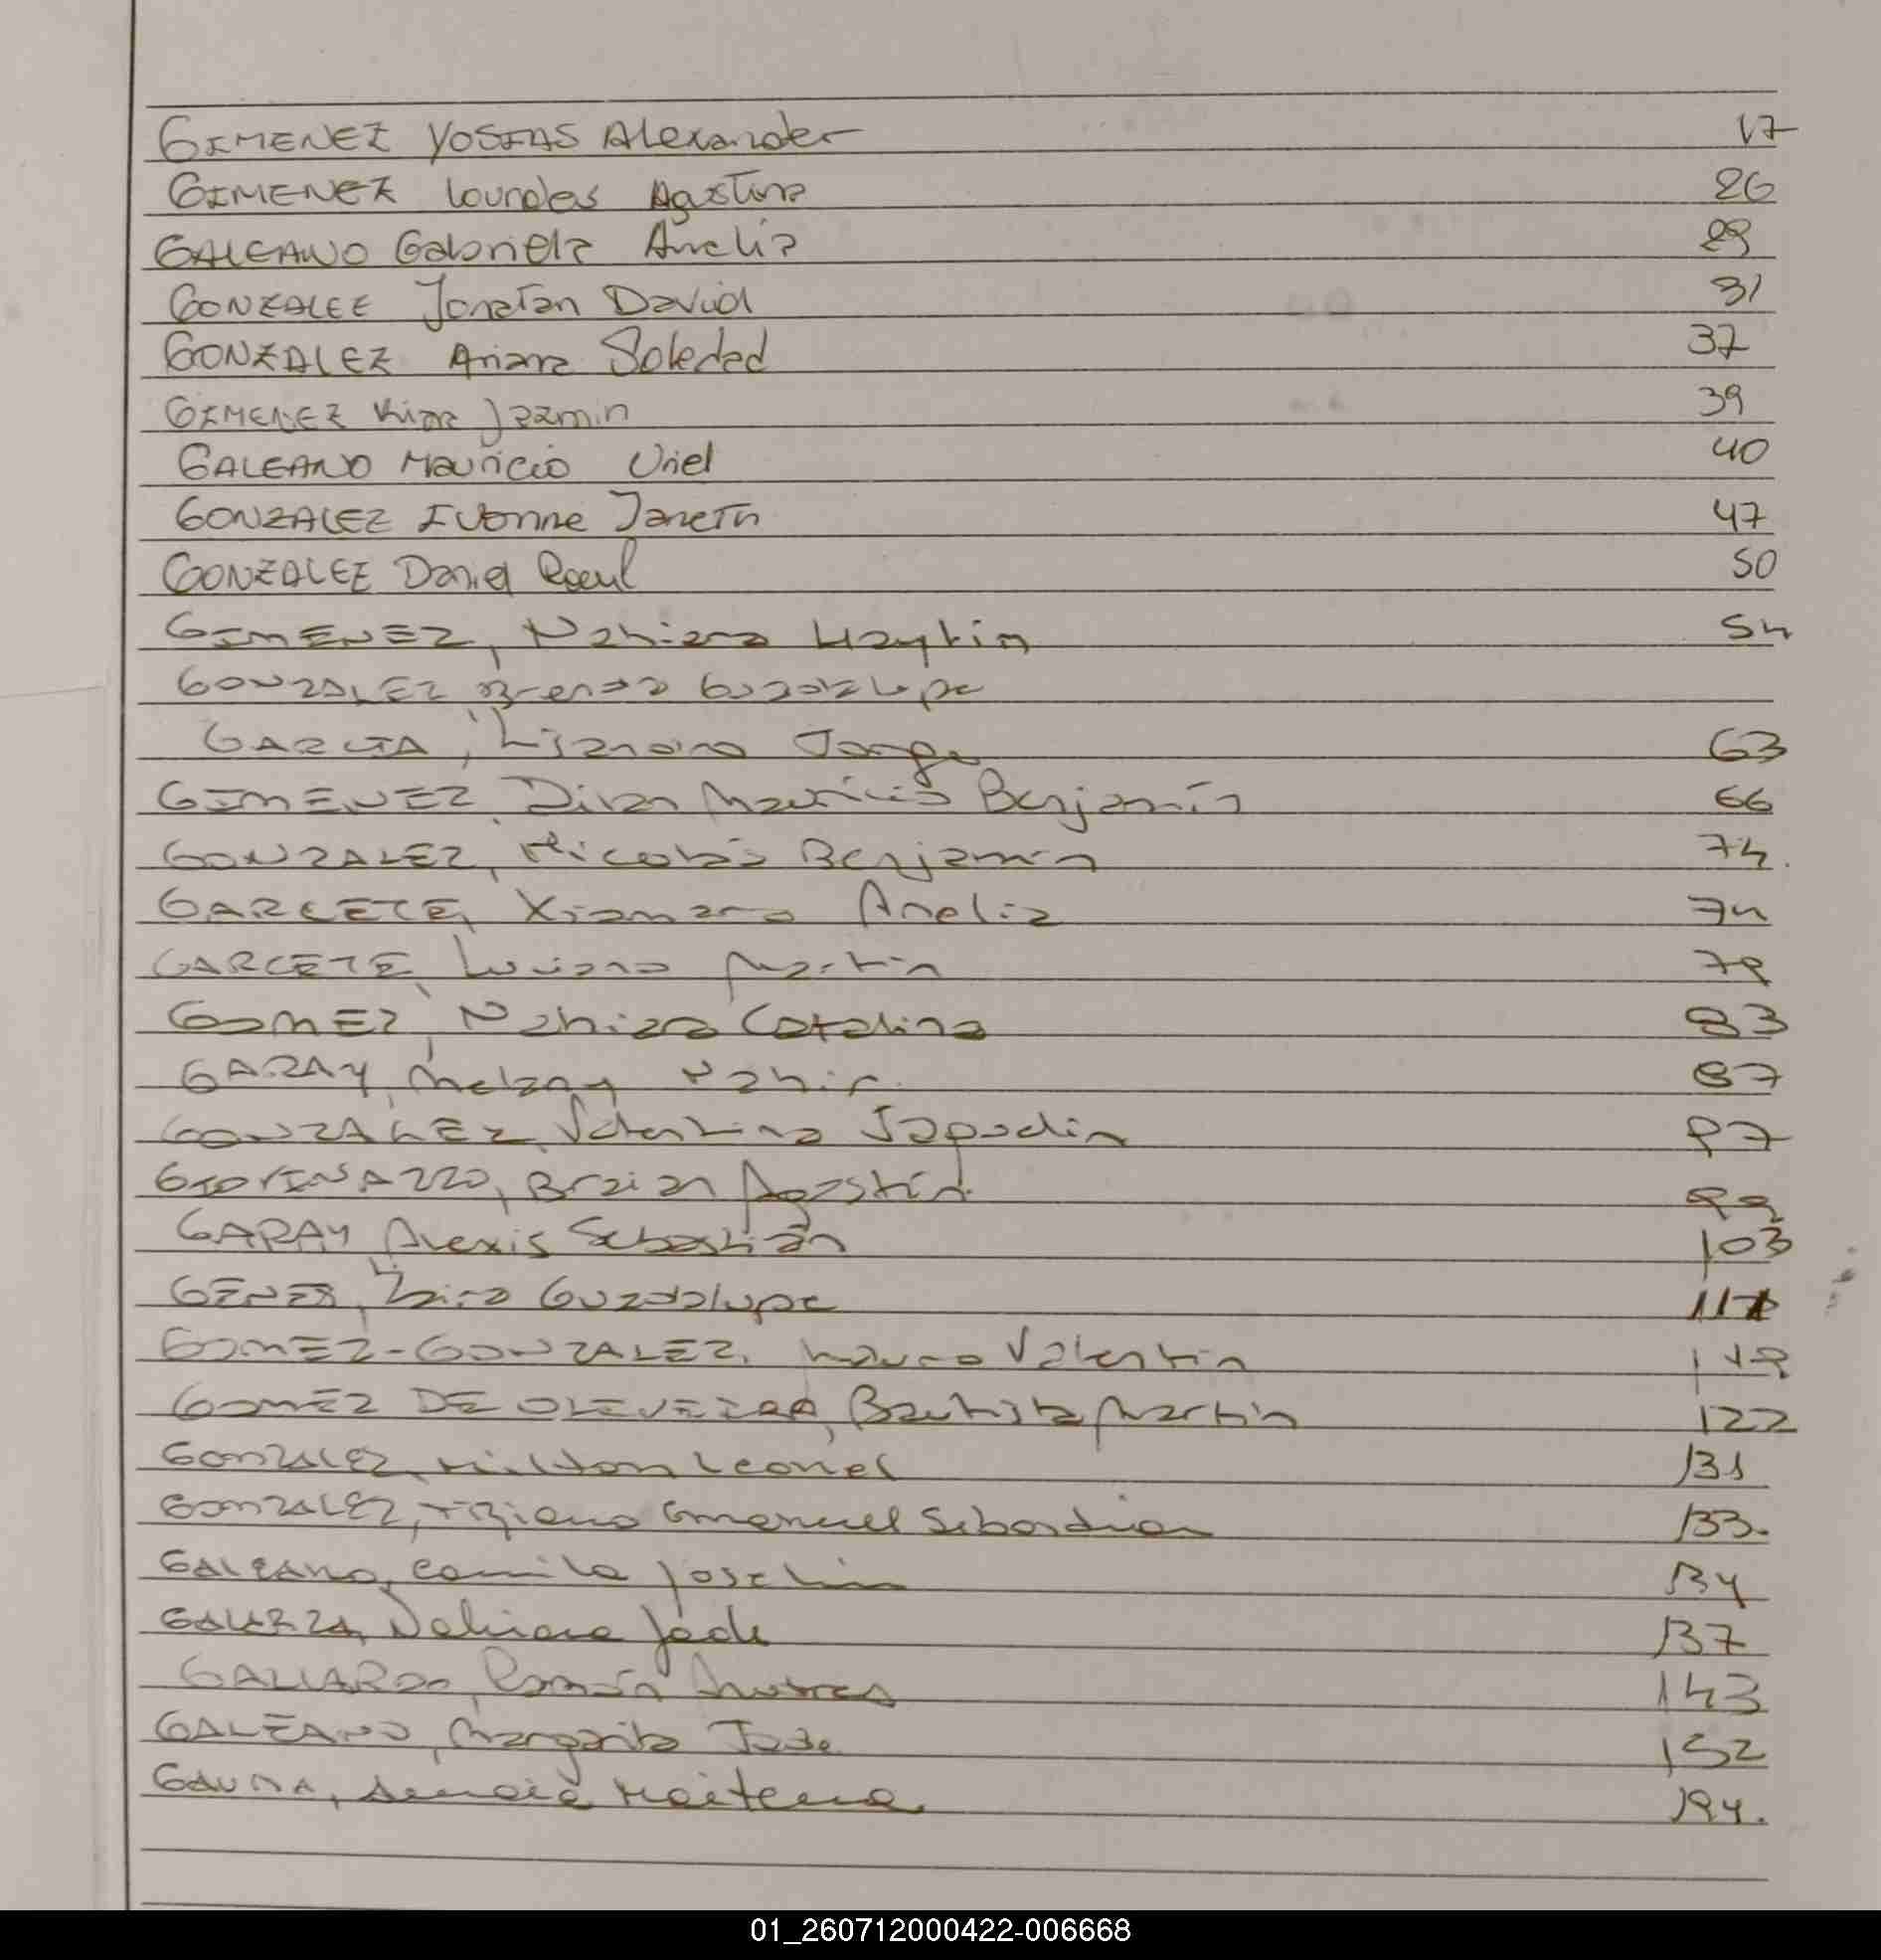 GIMENEZ YOSIAS Alexander 17
GIMENEZ Lourdes Agostina 26
GALEANO Gabriela Analia 29
GONZALEZ Jonatan David 31
GONZALEZ Ariana Soledad 37
GIMENEZ Kiara Jazmin 39
GALEANO Mauricio Uriel 40
GONZALEZ Ivonne Janeth 47
GONZALEZ Daniel Raul 50
GIMENEZ, Nahiara 54
GONZALEZ Brenda Guadalupe
GARCIA, Lisandro Jorge 63
GIMENEZ, Dilan Mauricio Benjamín 66
GONZALEZ, Nicolás Benjamín 74.
GARCETE, Xiomara Analia 74
GARCETE, Luciano Martin
GOMEZ, Nahiara Catalina 83
GARAY, Melany Nahir. 87
GONZALEZ, Valentina 97
GIOVINAZZO, Braian Agostín. 99
GARAY, Alexis Sebastián 103
GENES, Guadalupe
GOMEZ-GONZALEZ, Valentin 119
GOMEZ DE Bautista Martin 122
GONZALEZ, Milton Leonel 131
GONZALEZ, Tiziano Emanuel Sebastian 133.
GALEANO, Camila Joselin 134
GALARZA, Nahiara Jade 137
GALLARDO, Román Andres 143
GALEANO, Margarita Jade 152
GAUNA, Maitena 194.
01_260712000422-006668